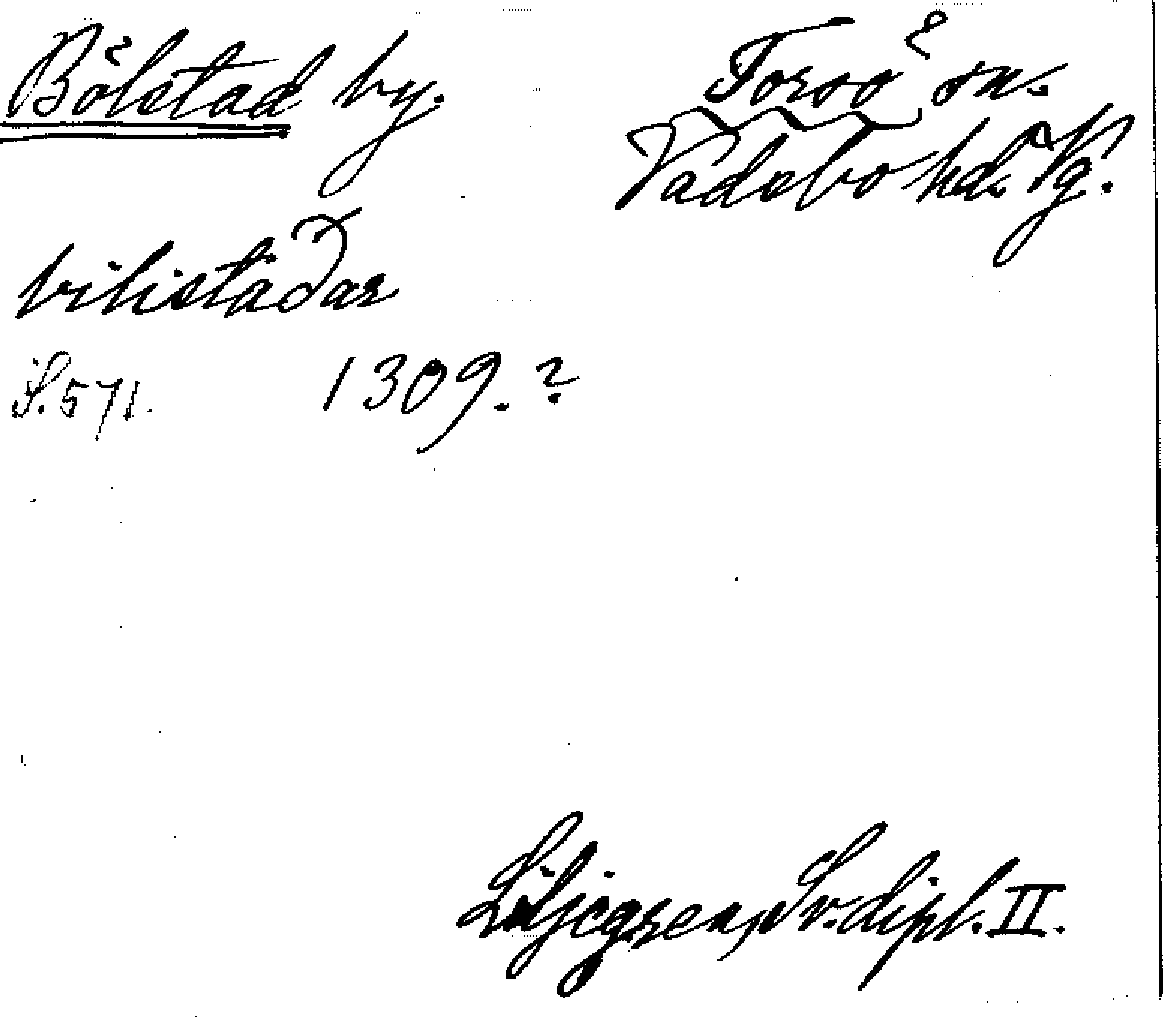 Bölstad by. Torsö sn.
Vadsbo hd. Vg.
bilistaðar
S. 571. 1309. ?
Liljegren, Sv. dipl. II.